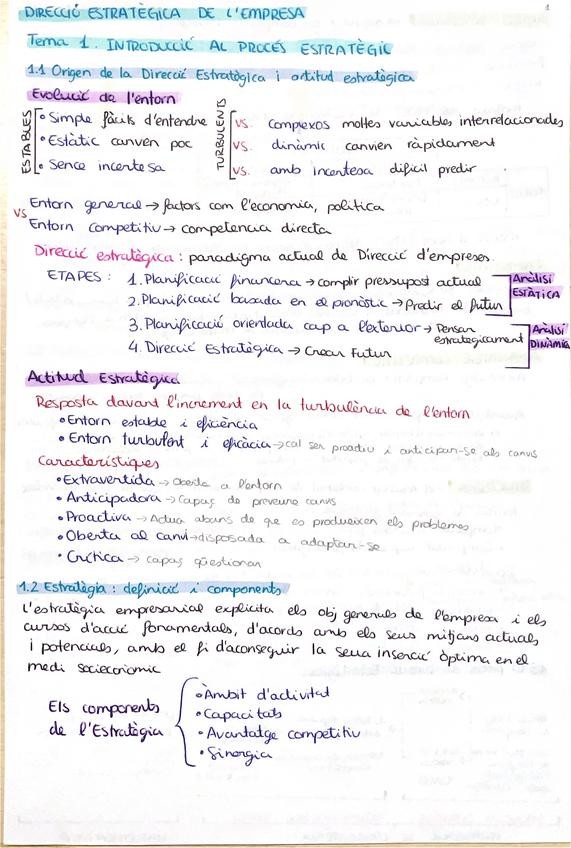 1
DIRECCIÓ ESTRATÈGICA DE L'EMPRESA
Tema 1. INTRODUCCIÓ AL PROCÉS ESTRATÈGIC
1.1 Origen de la Direcció Estratègica i actitud estratègica
Evolució de l'entorn
ESTABLES
TURBULENTS
• Simple fàcils d'entendre VS. complexos moltes variables interrelacionades
• Estàtic canvien poc VS. dinàmic canvien ràpidament
• Sence incertesa VS. amb incertesa difícil predir
VS
Entorn general → factors com l'economia, política
Entorn competitiu → competencia directa
Direcció estratègica : paradigma actual de Direcció d'empreses.
ETAPES : 1. Planificació financera → complir pressupost actual
2. Planificació basada en el pronòstic → Predir el futur
Anàlisi
ESTÀTICA
3. Planificació orientada cap a l'exterior → Pensar
estrategicament
4. Direcció Estratègica → Crear Futur
Anàlisi
DINÀMICA
Actitud Estratègica
Resposta davant l'increment en la turbulència de l'entorn
• Entorn estable i eficiència
• Entorn turbulent i eficàcia → cal ser proactiu i anticipar-se als canvis
Característiques
• Extravertida → Oberta a l'entorn
• Anticipadora → Capaç de preveure canvis
• Proactiva → Actua abans de que es produeixen els problemes
• Oberta al canvi → disposada a adaptar-se
• Crítica → capaç qüestionar
1.2 Estratègia : definició i components
L'estratègia empresarial explicita els obj generals de l'empresa i els
cursos d'acció fonamentals, d'acords amb els seus mitjans actuals
i potencials, amb el fi d'aconseguir la seua inserció òptima en el
medi socieconomic
Els components
de l'Estratègia
• Àmbit d'activitat
• Capacitats
• Avantatge competitiu
• Sinergia